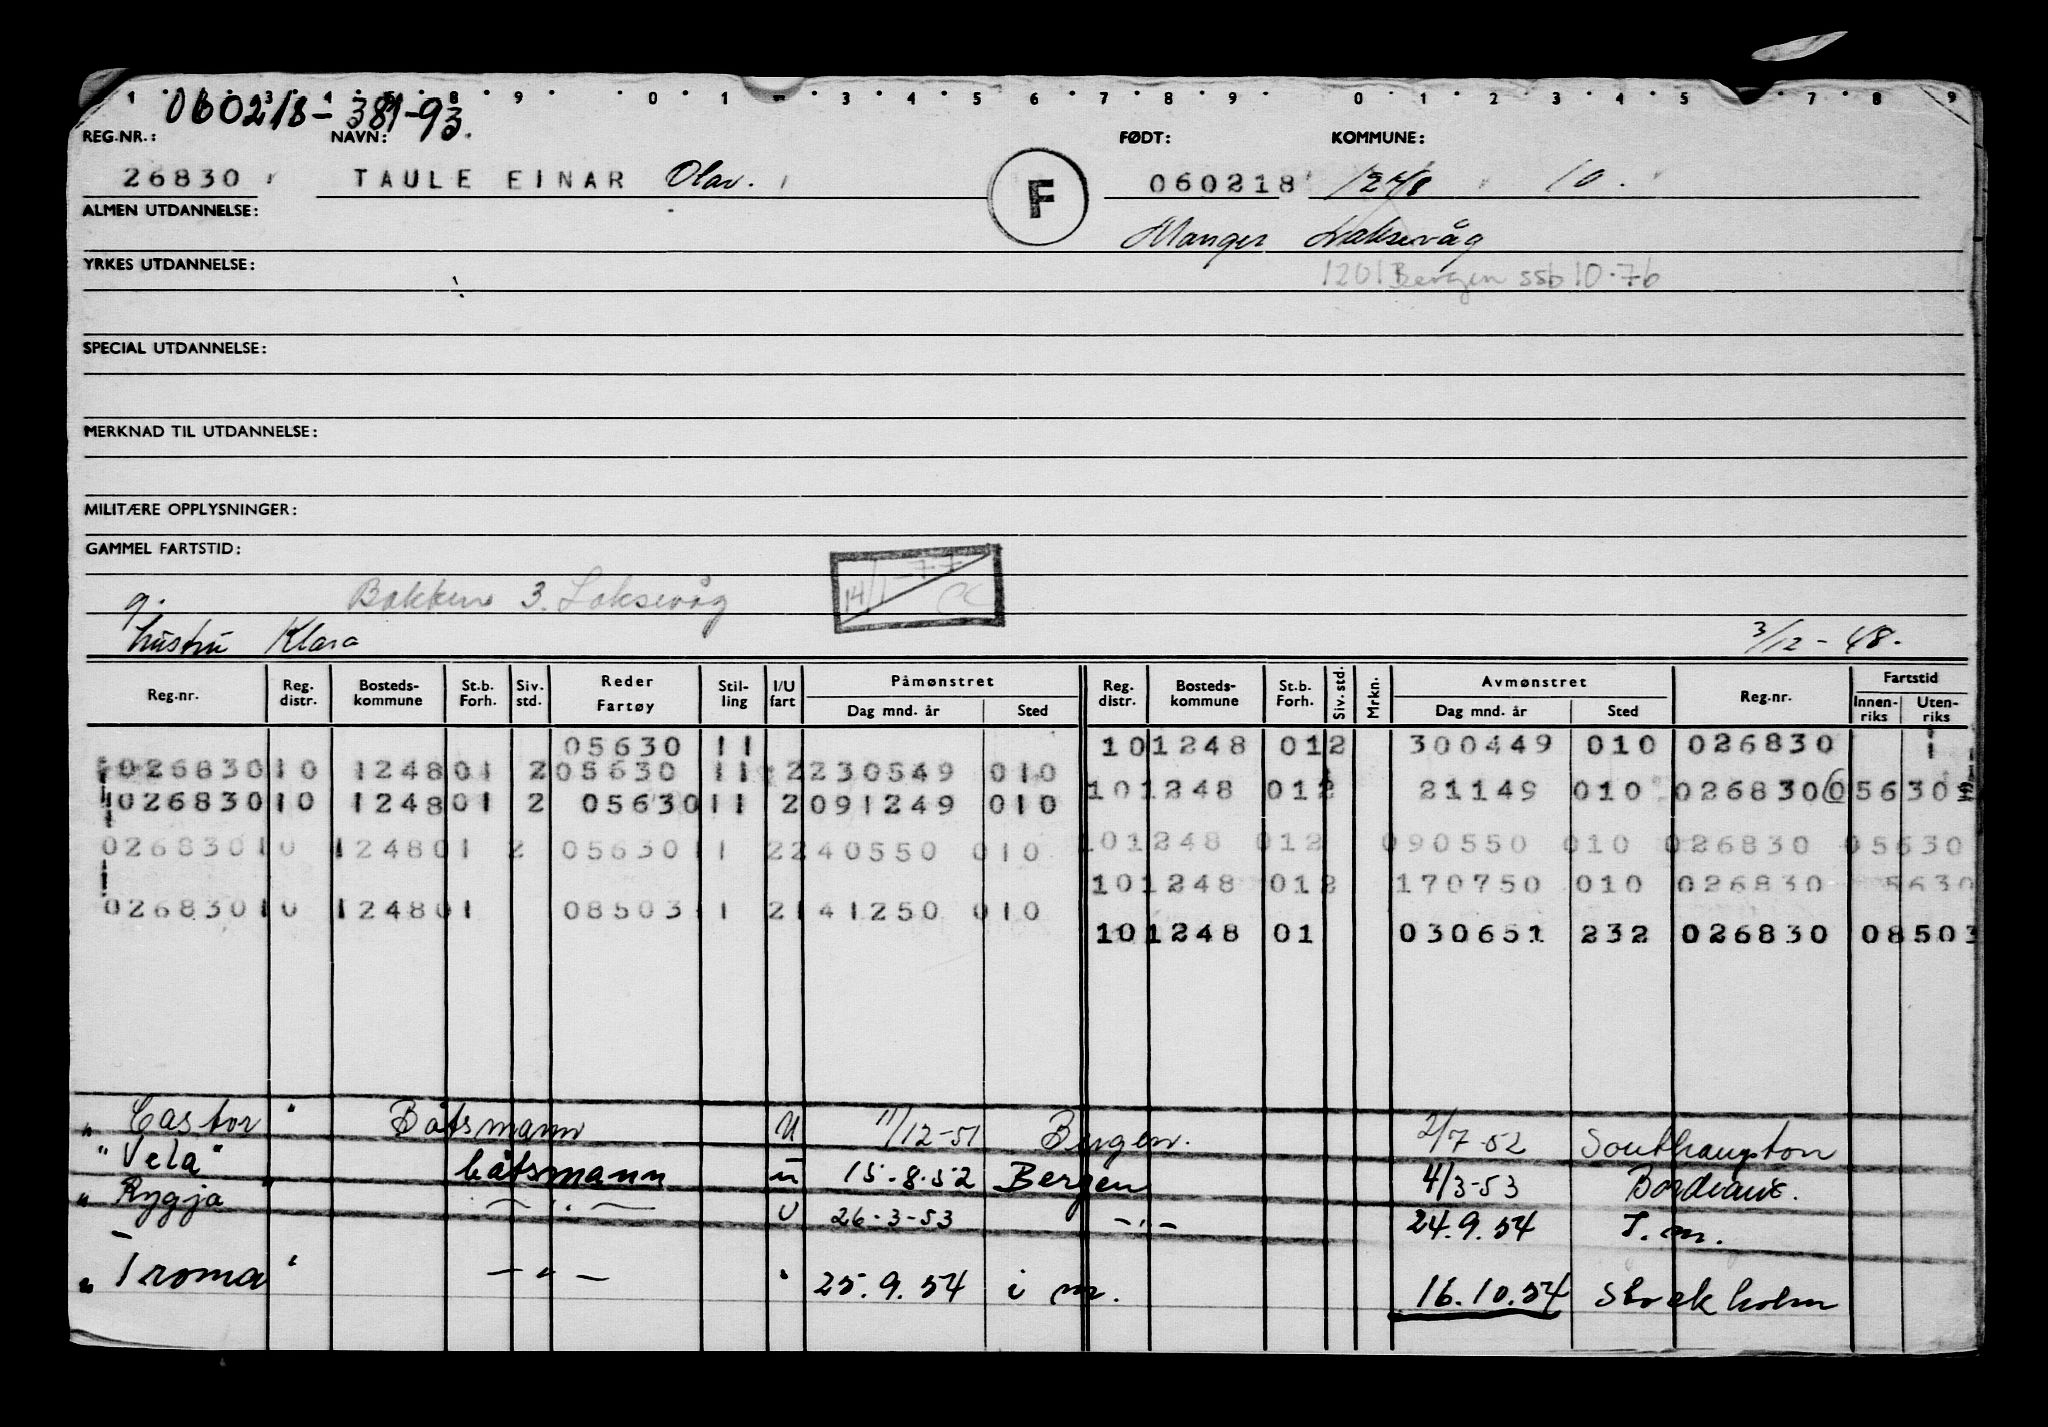 1 2 3 4 5 8 9 0 1 3 4 5 6 7 8 9 0 1 2 3 4 5 7 8 9
060218-381-93.
REG.NR.: NAVN: FØDT: KOMMUNE:
26830 TAULE EINAR Olav. F 060218 1248 10.
ALMEN UTDANNELSE: Manger Laksevåg
YRKES UTDANNELSE: 1201 Bergen ssb 10.76
SPECIAL UTDANNELSE:
MERKNAD TIL UTDANNELSE:
MILITÆRE OPPLYSNINGER:
GAMMEL FARTSTID:
g. Bakken 3. Laksevåg 14/1-77
hustru Klara 3/12-48.
Reg.nr. Reg. distr. Bosteds-kommune St.b. Forh. Siv. std. Reder Fartøy Stil-ling I/U fart Påmønstret Reg. distr. Bosteds-kommune St.b. Forh. Siv. std. Mrkn. Avmønstret Reg.nr. Fartstid
Dag mnd. år Sted Dag mnd. år Sted Innen-riks Uten-riks
05630 11 10 1248 01 2 300449 010 026830
026830 10 1248 01 2 05630 11 2 230549 010
10 1248 01 2 21149 010 026830 05630
026830 10 1248 01 2 05630 11 2 091249 010
10 1248 01 2 090550 010 026830 05630
026830 10 1248 01 2 05630 11 2 240550 010
10 1248 01 2 170750 010 026830 5630
026830 10 1248 01 08503 1 2 141250 010
10 1248 01 030651 232 026830 08503
"Castor" Båtsmann U 11/12-51 Bergen. 2/7-52 Southampton
"Vela" båtsmann u 15.8.52 Bergen 4/3-53 Bordeaux.
"Rygja" -"- U 26-3-53 -"- 24.9.54 I.m.
"Troma" -"- " 25.9.54 i m. 16.10.54 Stockholm